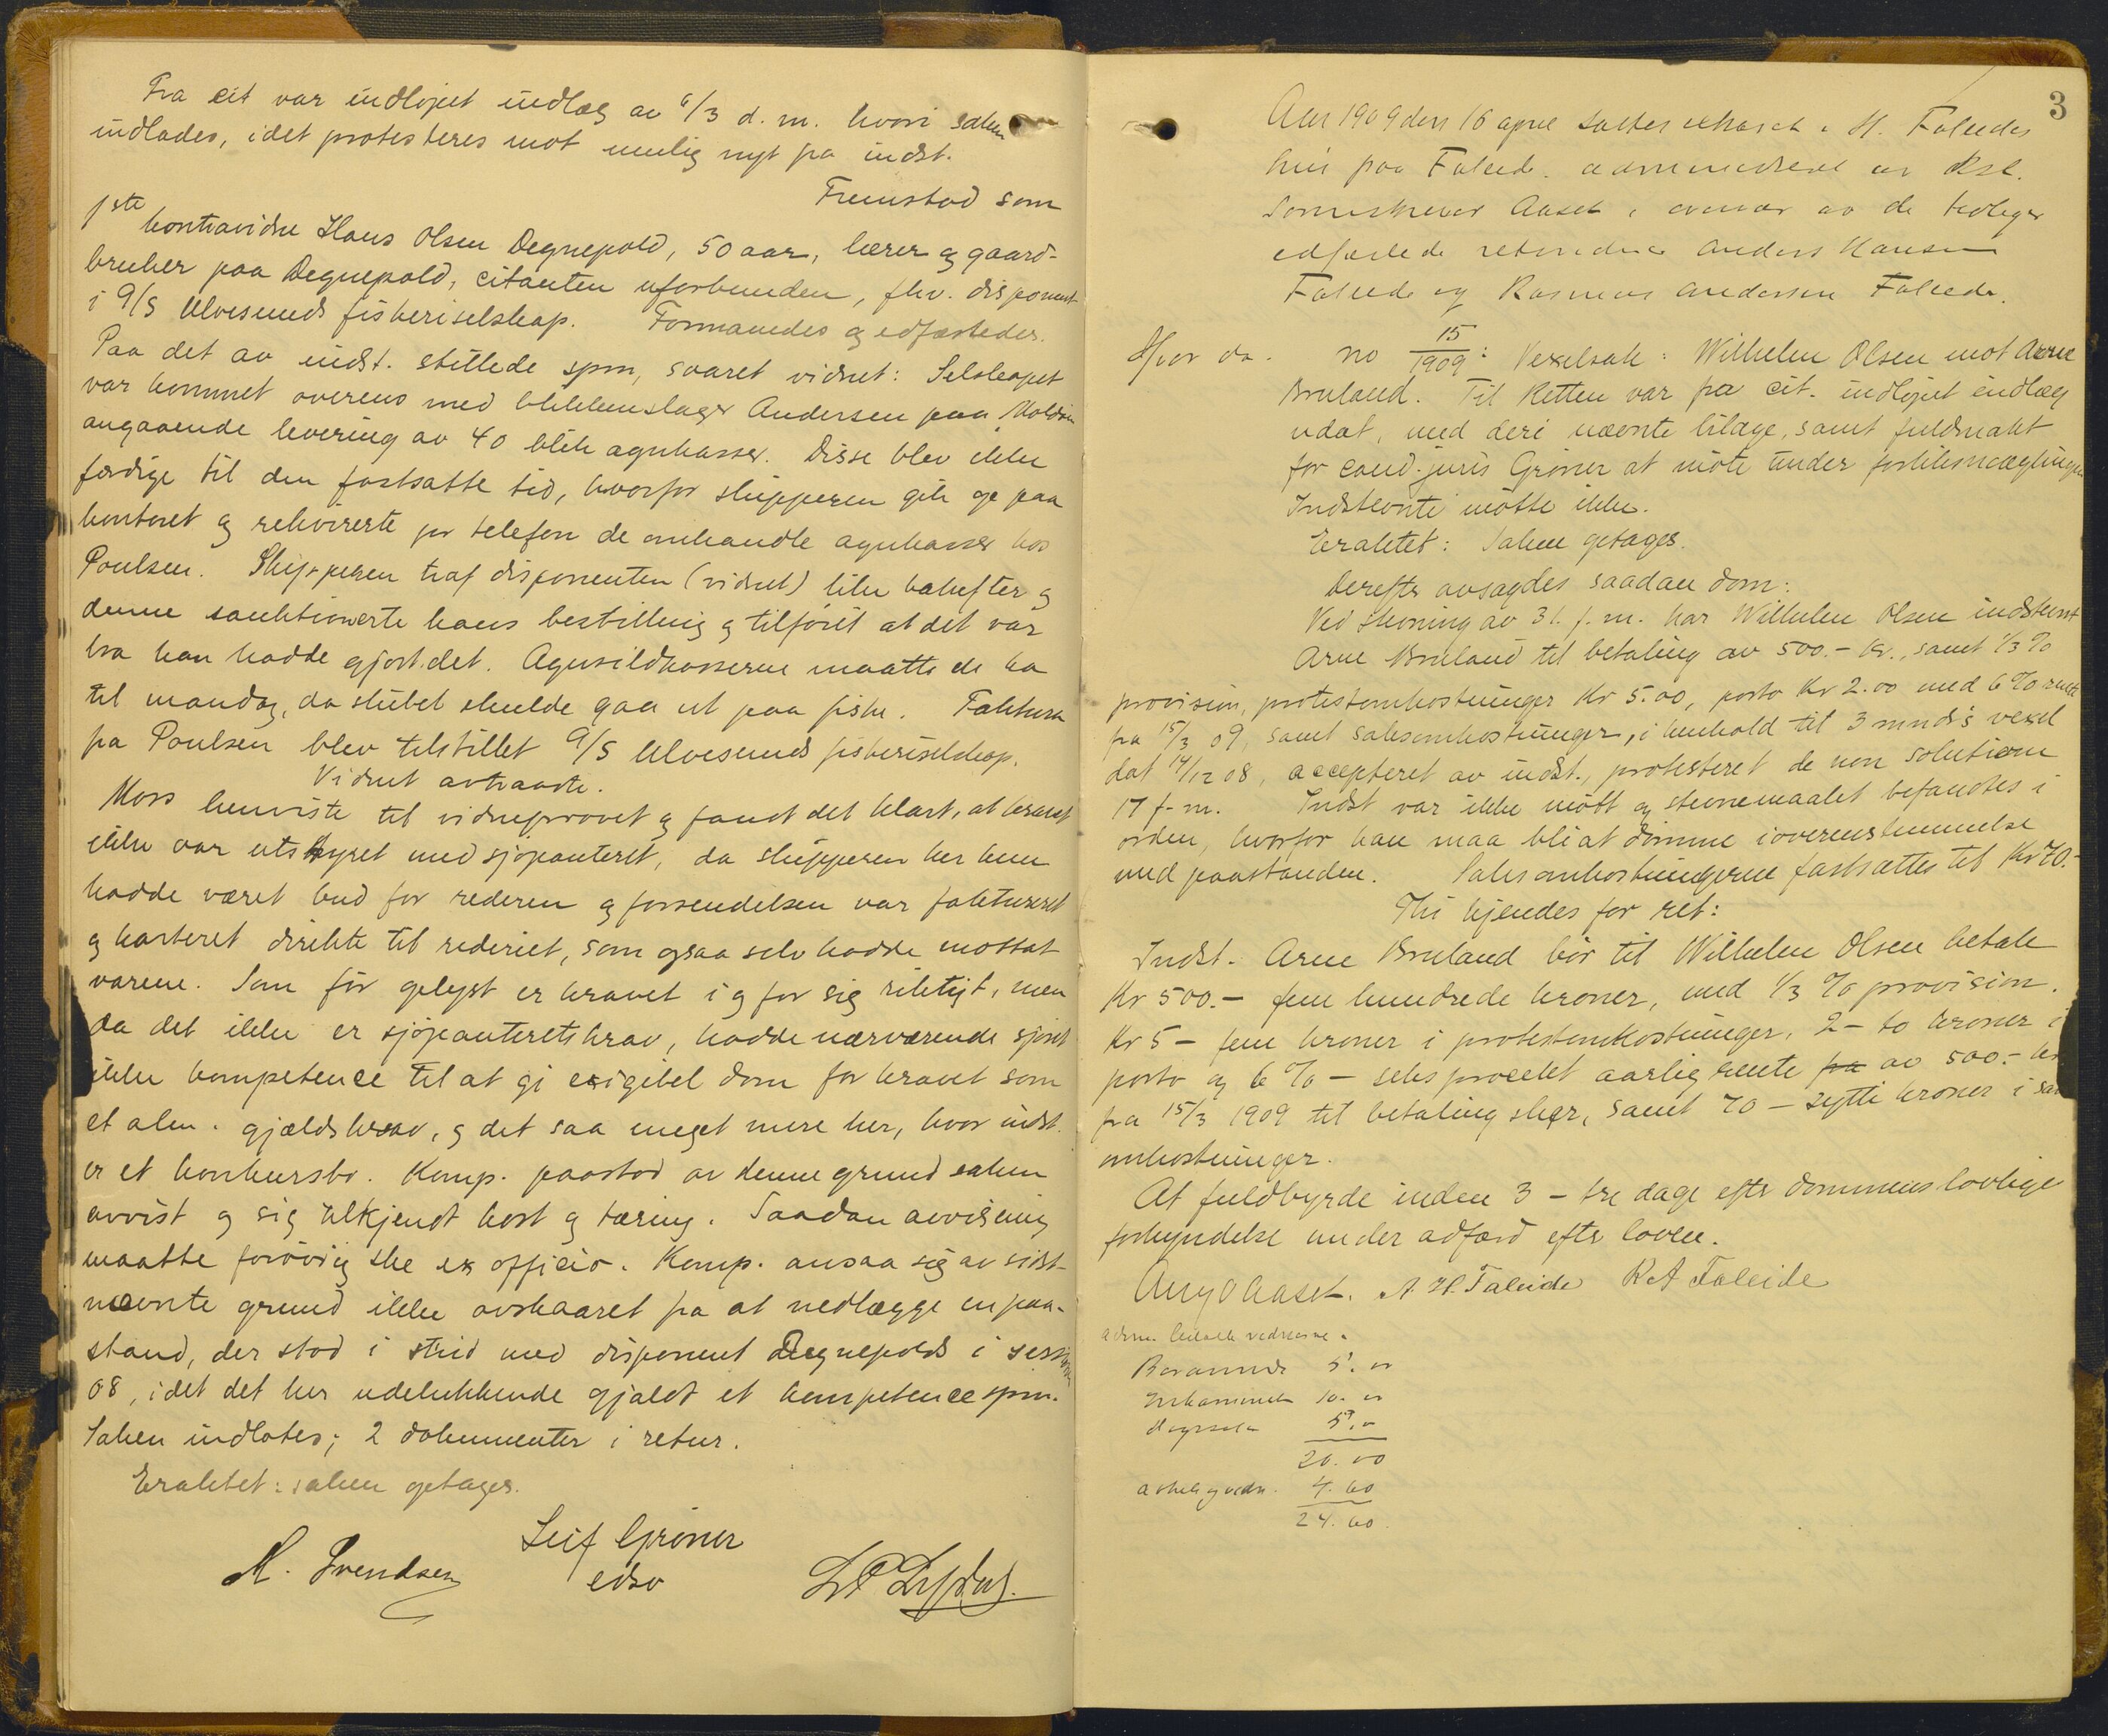 Fra cit var indløpet indlæg av 6/3 d. m. hvori saken
indlades, idet protesteres mot mulig nyt fra indst.
Fremstod som
1ste kontravidne Hans Olsen Degnepold, 50 aar, lærer og gaard-
bruker paa Degnepold, citanten uforbunden, fhv. disponent
i A/S Ulvesunds fiskeriselskap. Formanedes og edfæstedes.
Paa det av indst. stillede spm, svaret vidnet: Selskapet
var kommet overens med blikkenslager Andersen paa Moldøen
angaaende levering av 40 blik agnkasser. Disse blev ikke
færdige til den fastsatte tid, hvorfor skipperen gik op paa
kontoret og rekvirerte pr telefon de omhandle agnkasser hos
Poulsen. Skipperen traf disponenten (vidnet) like bakefter og
denne sanktionerte hans bestilling og tilføiet at det var
bra han hadde gjort det. Agnsildkasserne maatte de ha
til mandag, da skibet skulde gaa ut paa fiske. Faktura
fra Poulsen blev tilstillet A/S Ulvesunds fiskeriselskap.
Vidnet avtraadte.
Moss henviste til vidneprovet og fandt det klart, at kravet
ikke var utstyret med sjøpanteret, da skipperen her kun
hadde været bud for rederen og forsendelsen var faktureret
og karteret direkte til rederiet, som ogsaa selv hadde mottat
varene. Som før oplyst er kravet i og for sig riktigt, men
da det ikke er sjøpanteretskrav, hadde nærværende sjøret
ikke kompetence til at gi exigibel dom for kravet som
et alm. gjældskrav, og det saa meget mere her, hvor indst.
er et konkursbo. Komp. paastod av denne grund saken
avvist og sig tilkjendt kost og tæring. Saadan avvisning
maatte forøvrig ske ex officio. Komp. ansaa sig av sidst-
nævnte grund ikke avskaaret fra at nedlægge en paa-
stand, der stod i strid med disponent Degnepolds i
08, idet det her udelukkende gjaldt et kompetencespm.
Saken indlates; 2 dokumenter i retur.
Eraktet: saken optages.
M. Svendsen Leif Grøner
edsv
3
Aar 1909 den 16 april sattes ekstraret i H. Faleides
hus paa Faleide administreret av kst.
sorenskriver Aaset i overvær av de tidligere
edfæstede retsvidner Anders Hansen
Faleide og Rasmus Andersen Faleide.
Hvor da. no 15/1909: Vexelsak: Wilhelm Olsen mot Arne
Bruland. Til Retten var fra cit. indløpet indlæg
udat, med deri nævnte bilage, samt fuldmakt
for cand. juris Grøner at møte under forliksmæglingen
Indstevnte møtte ikke.
Eraktet: Saken optages.
Derefter avsagdes saadan dom:
Ved stevning av 31. f. m. har Wilhelm Olsen indstevnt
Arne Bruland til betaling av 500.- kr., samt 1/3 %
provision, protestomkostninger Kr 5.00, porto Kr 2.00 med 6 % rente
fra 15/3 09, samt saksomkostninger, i henhold til 3 mnds's vexel
dat 14/12 08, accepteret av indst., protesteret de non solutione
17 f. m. Indst var ikke møtt og stevnemaalet befandtes i
orden, hvorfor han maa bli at dømme i overenstemmelse
med paastanden. Saksomkostningerne fastsættes til Kr 70.-
Thi kjendes for ret:
Indst. Arne Bruland bør til Wilhelm Olsen betale
Kr 500.- fem hundrede kroner, med 1/3 % provision.
Kr 5 - fem kroner i protestomkostninger, 2 - to kroner i
porto og 6 % - seks procent aarlig rente fra av 500.- kr
fra 15/3 1909 til betaling sker, samt 70 - sytti kroner i saks
omkostninger.
At fuldbyrde inden 3 - tre dage efter dommens lovlige
forkyndelse under adfærd efter loven.
Aug O Aaset. A. H. Faleide R A Faleide
5. 00
10. 00
5. 00
20. 00
4. 60
24. 60